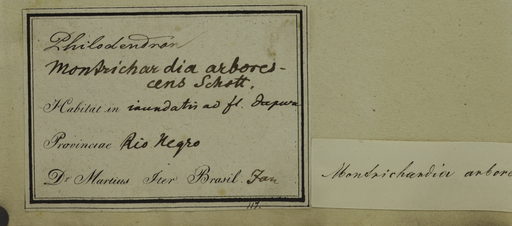 Philodendron
Montrichardia arbores-
cens Schott.
Habitat in inundatis ad fl. Japura
Provinciae Rio Negro
Dr Martius Iter Brasil. Jan
Montrichardia arbore